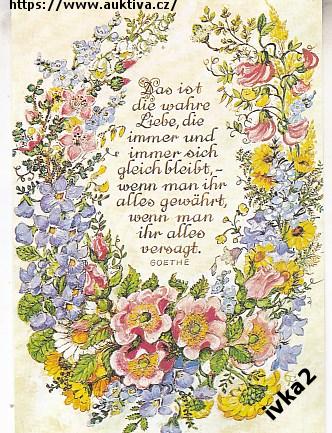 https://www.auktiva.cz/
Das ist
die wahre
Liebe, die
immer und
immer sich
gleich bleibt,-
wenn man ihr
alles gewährt,
wenn man
ihr alles
versagt.
GOETHE
ivka2